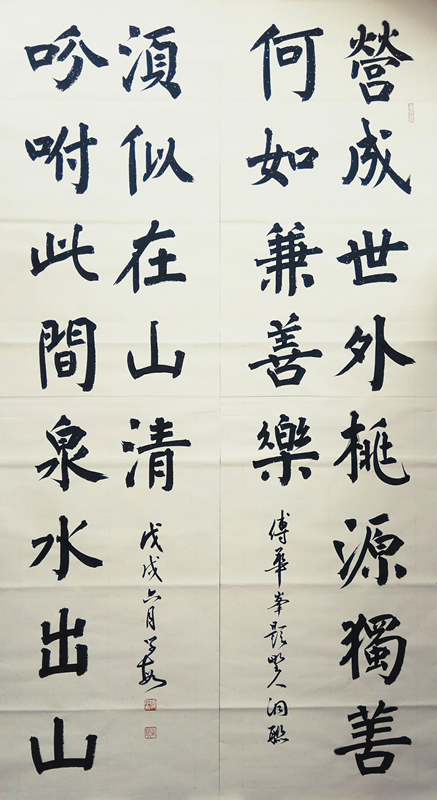 營成世外桃源獨善
何如兼善樂
傅華峯題人洞聯
吩咐此間泉水出山
湏似在山清
戊戌六月